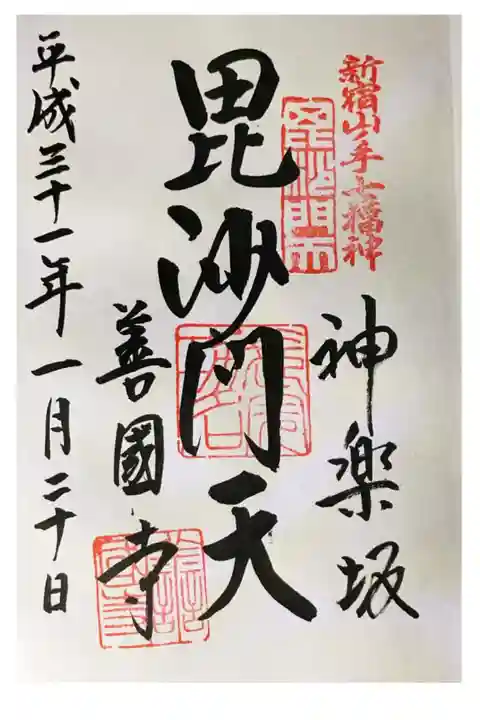 新宿山ノ手七福神
神楽坂
毘沙門天
毘沙門天
善國寺
平成三十一年一月二十日